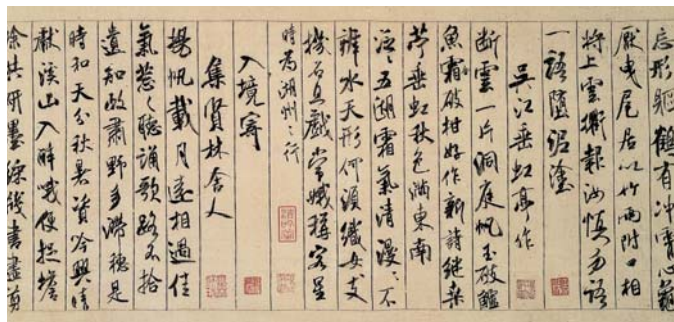 忘形軀鶴有冲霄心龜
厭曳尾居以竹兩附口相
将上雲衢報汝慎勿語
一語墮泥塗
吴江垂虹亭作
断雲一片洞庭帆玉破鱸
魚霜破柑好作新詩継桑
苧垂虹秋色満東南
泛〻五湖霜氣清漫〻不
辨水天形何須織女支
機石且戲常娥稱客星
時為湖州之行
入境寄
集賢林舍人
揚帆載月遠相過佳
氣葱〻聽誦歌路不拾
遺知政肅野多滯穗是
時和天分秋暑資吟興晴
獻溪山入醉哦便捉蟾
蜍共研墨綵牋書盡剪